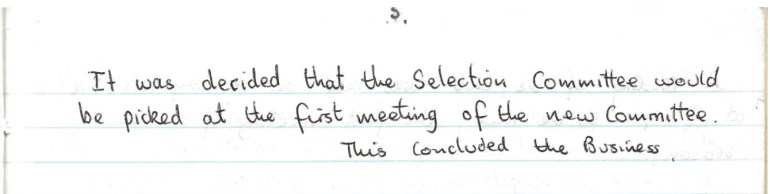 5.
It was decided that the Selection Committee would
be picked at the first meeting of the new Committee.
This Concluded the Business.